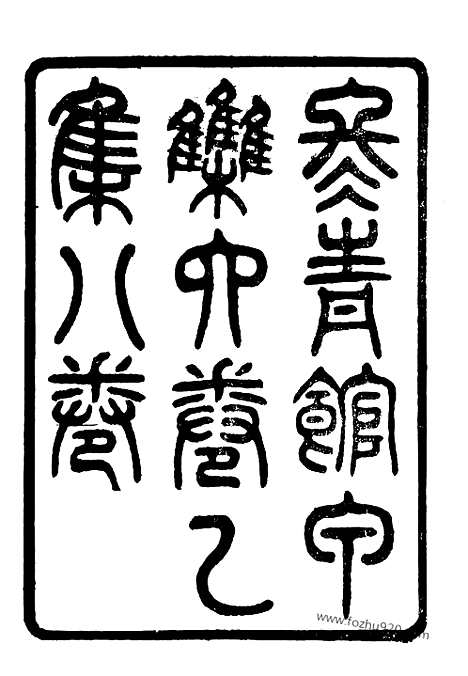 冬青館甲
雧六卷乙
集八卷
www.fozhu920.com